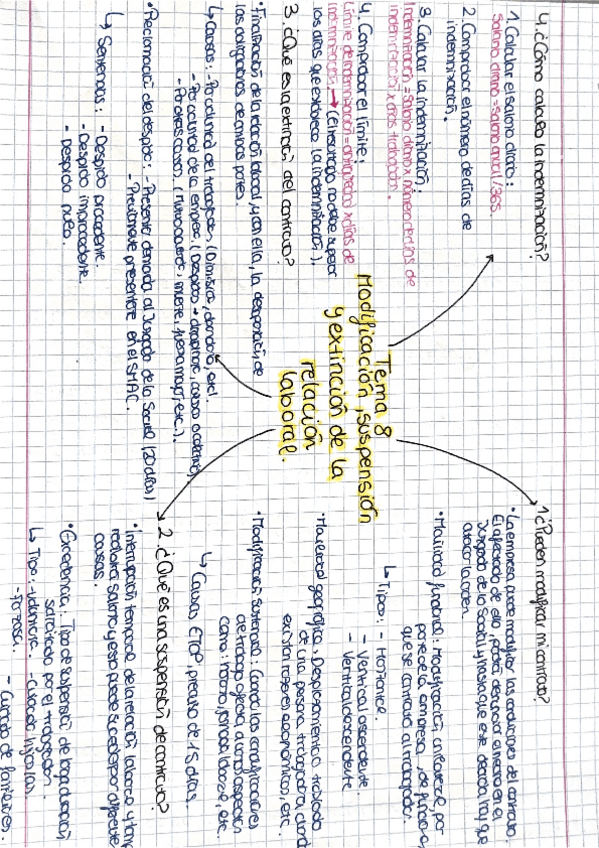 Tema 8
Modificación, suspensión
y extinción de la
relación
laboral.
1 ¿Pueden modificar mi contrato?
• La empresa puede modificar las condiciones del contrato.
El afectado de ello, podrá denunciar el hecho en el
Juzgado de lo Social y hasta que este decida, hay que
acatar la orden.
• Movilidad funcional: Modificación unilateral, por
parte de la empresa, de funciones
que se contrató al trabajador.
↳ Tipos: - Horizontal.
- Vertical ascendente.
- Vertical descendente
• Movilidad geográfica. Desplazamiento o traslado
de una persona trabajadora, cuando
existan razones económicas, etc.
• Modificación sustancial: Cuando las
de trabajo afecta a como aspectos
como: horario, jornada laboral, etc.
↳ Causas ETOP, preaviso de 15 días.
2. ¿Qué es una suspensión de contrato?
• Interrupción temporal de la relación laboral y
salario y esto puede suceder por diferentes
causas.
• Excedencia: Tipo de suspensión de larga duración
solicitado por el trabajador.
↳ Tipo: - Voluntaria. - Cuidado hijo/as.
- Forzosa. - Cuidado de familiares.
3. ¿Qué es la extinción del contrato?
• Finalización de la relación laboral, y con ella, la desaparición de
las obligaciones de ambas partes.
↳ Causas: - Por voluntad del trabajador, (Dimisión, abandono, etc).
- Por voluntad de la empresa, (Despidos → disciplinario, causas objetivas)
- Por otras causas, (Mutuo acuerdo, muerte, fuerza mayor, etc.).
• Reclamación del despido: - Presentar demanda al Juzgado de lo Social (20 días)
- Previamente presentarse en el SMAC.
↳ Sentencias: - Despido procedente.
- Despido improcedente.
- Despido nulo.
4. ¿Cómo calculo la indemnización?
1. Calcular el salario diario:
Salario diario = Salario anual / 365.
2. Comprobar el número de días de
indemnización.
3. Calcular la indemnización:
Indemnización = Salario diario x número de días de
indemnización x años trabajados.
4. Comprobar el límite:
Límite de indemnización = x días de
indemnización. → (El resultado no debe superar
los días que establece la indemnización).